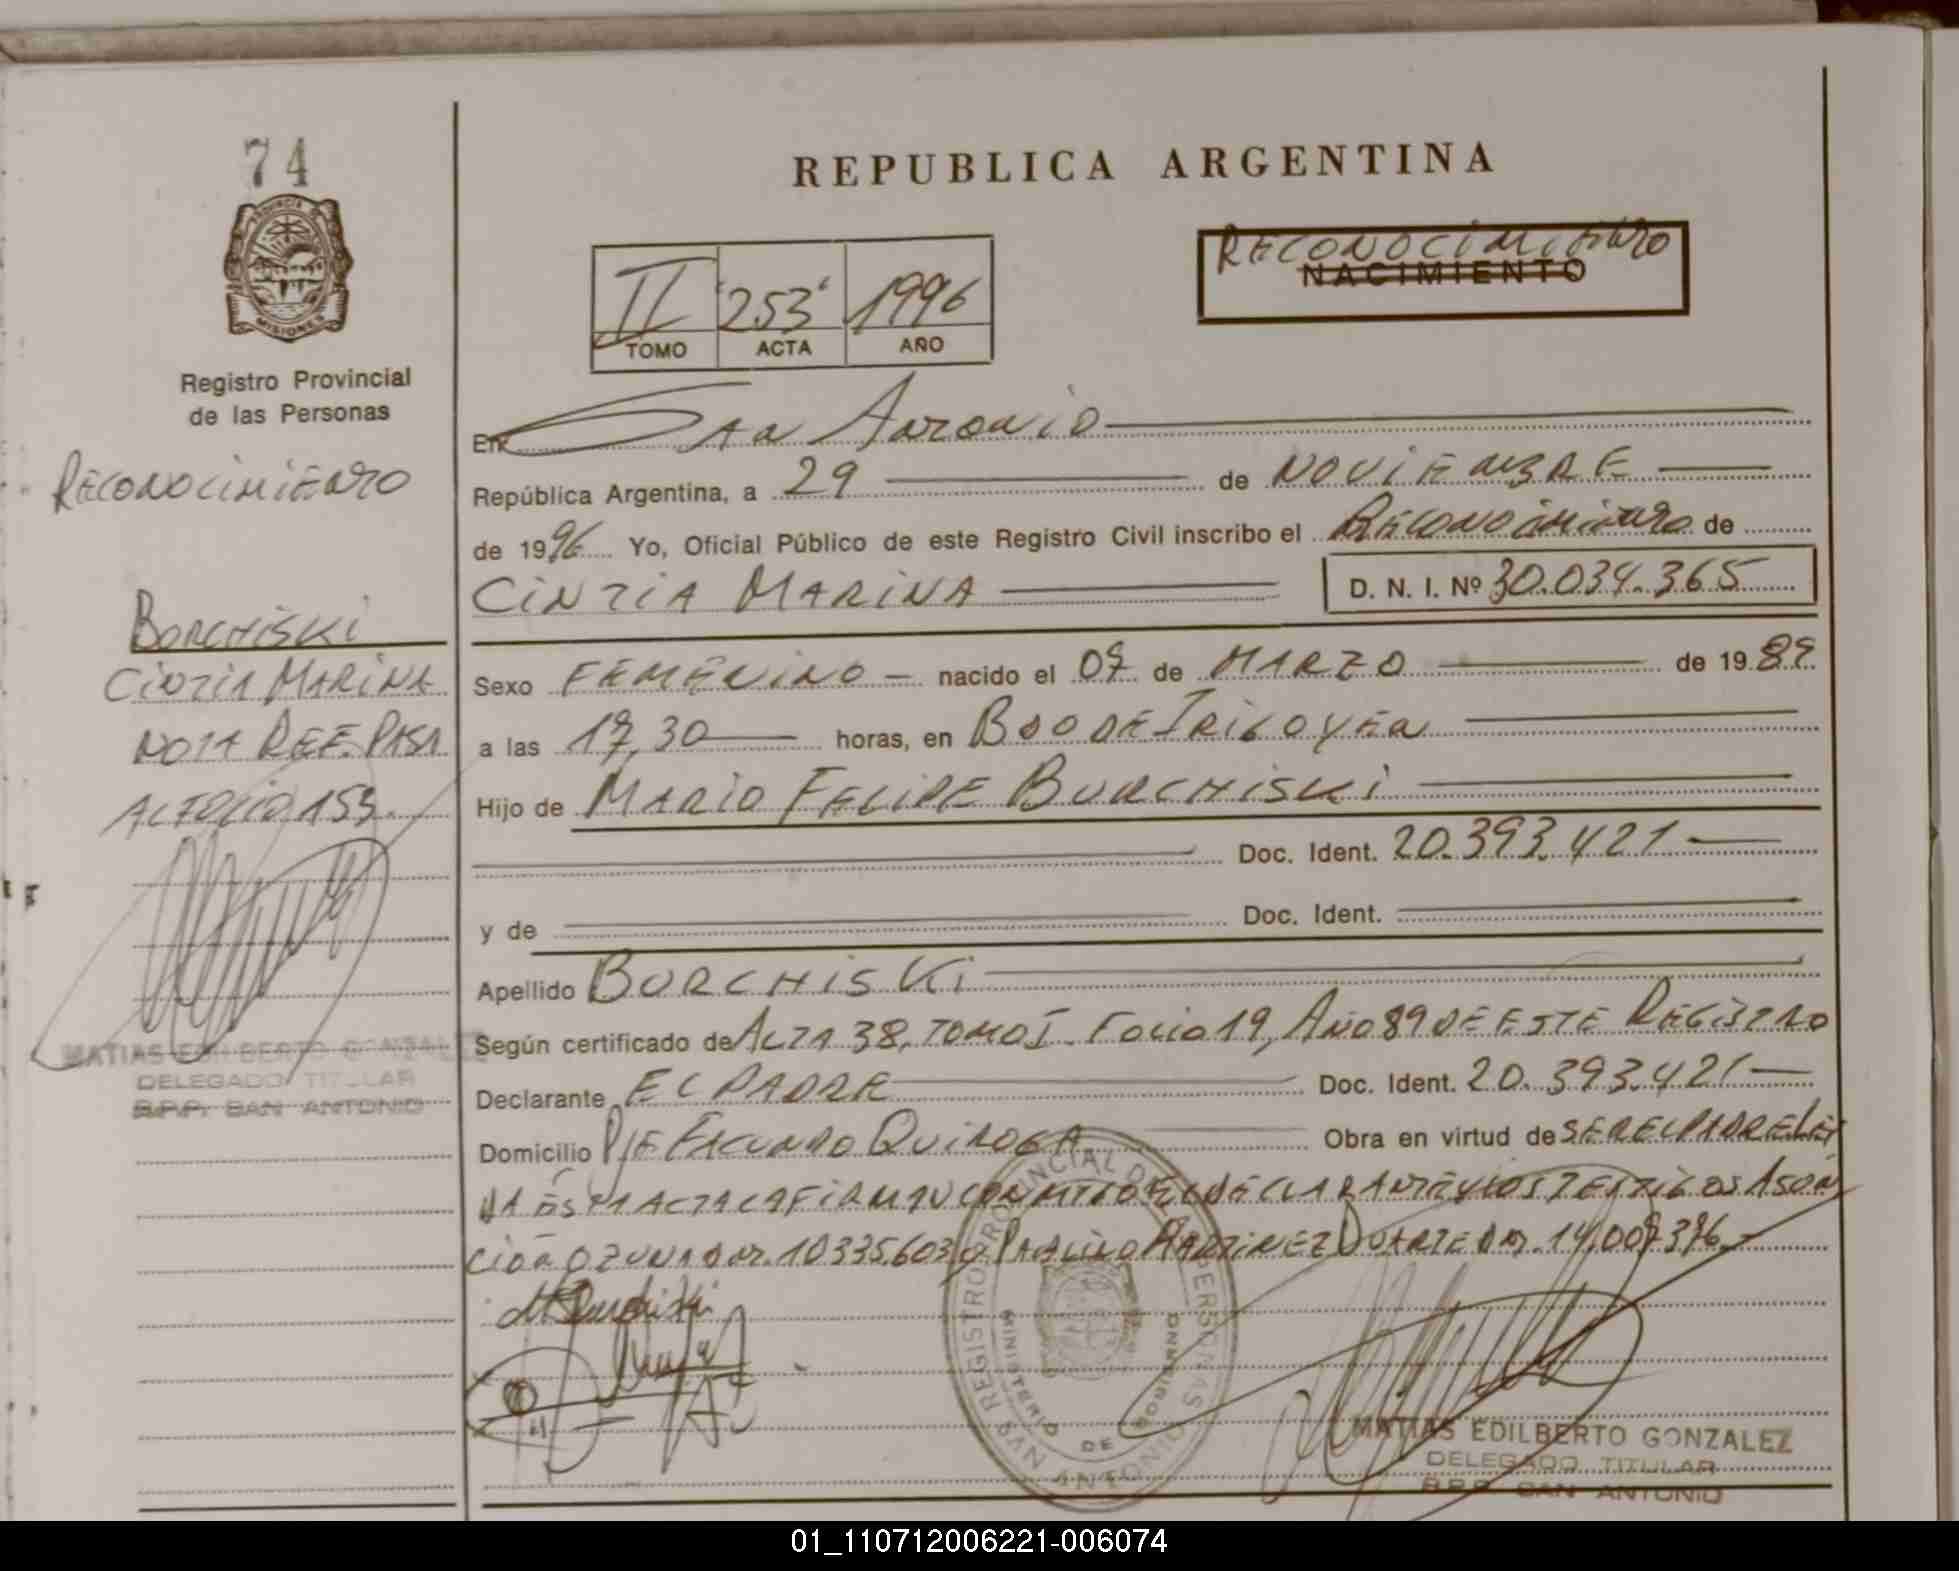 74
PROVINCIA DE
MISIONES
Registro Provincial
de las Personas
RECONOCIMIENTO
BORCHISKI
CINZIA MARINA
NOTA REF. PASA
AL FOLIO 153.
MATIAS EDILBERTO GONZALEZ
DELEGADO TITULAR
R.P.P. SAN ANTONIO
REPUBLICA ARGENTINA
II "253" 1996
TOMO ACTA AÑO
RECONOCIMIENTO
NACIMIENTO
En San Antonio
República Argentina, a 29 de NOVIEMBRE
de 1996 Yo, Oficial Público de este Registro Civil inscribo el RECONOCIMIENTO de
CINZIA MARINA D. N. I. Nº 30.034.365
Sexo FEMENINO nacido el 07 de MARZO de 1989
a las 17,30 horas, en BDO DE IRIGOYEN
Hijo de MARIO FELIPE BURCHISKI
Doc. Ident. 20.393.421
y de Doc. Ident.
Apellido BORCHISKI
Según certificado de ACTA 38, TOMO I FOLIO 19, AÑO 89 DE ESTE REGISTRO
Declarante EL PADRE Doc. Ident. 20.393.421
Domicilio PJE FACUNDO QUIROGA Obra en virtud de SER EL PADRE LEI
DA ESTA ACTA LA FIRMAN CONMIGO EL DECLARANTE Y LOS TESTIGOS ASUN
CION OZUNA DNI. 10335.603 PAULINO MARTINEZ DUARTE DNI. 14.007376
REGISTRO PROVINCIAL DE LAS PERSONAS
MINISTERIO DE GOBIERNO
SAN ANTONIO
MATIAS EDILBERTO GONZALEZ
DELEGADO TITULAR
R.P.P. SAN ANTONIO
01_110712006221-006074